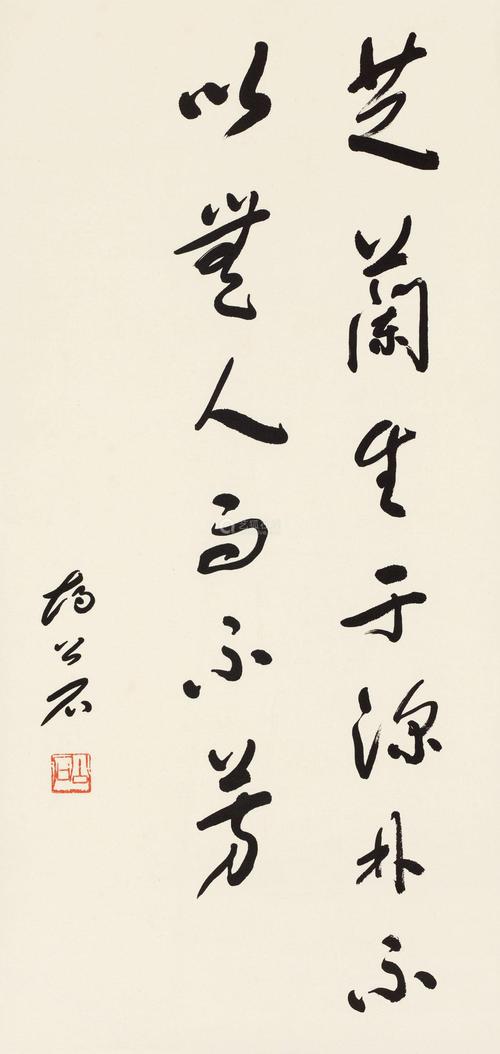 芝蘭生于深林不
以無人而不芳